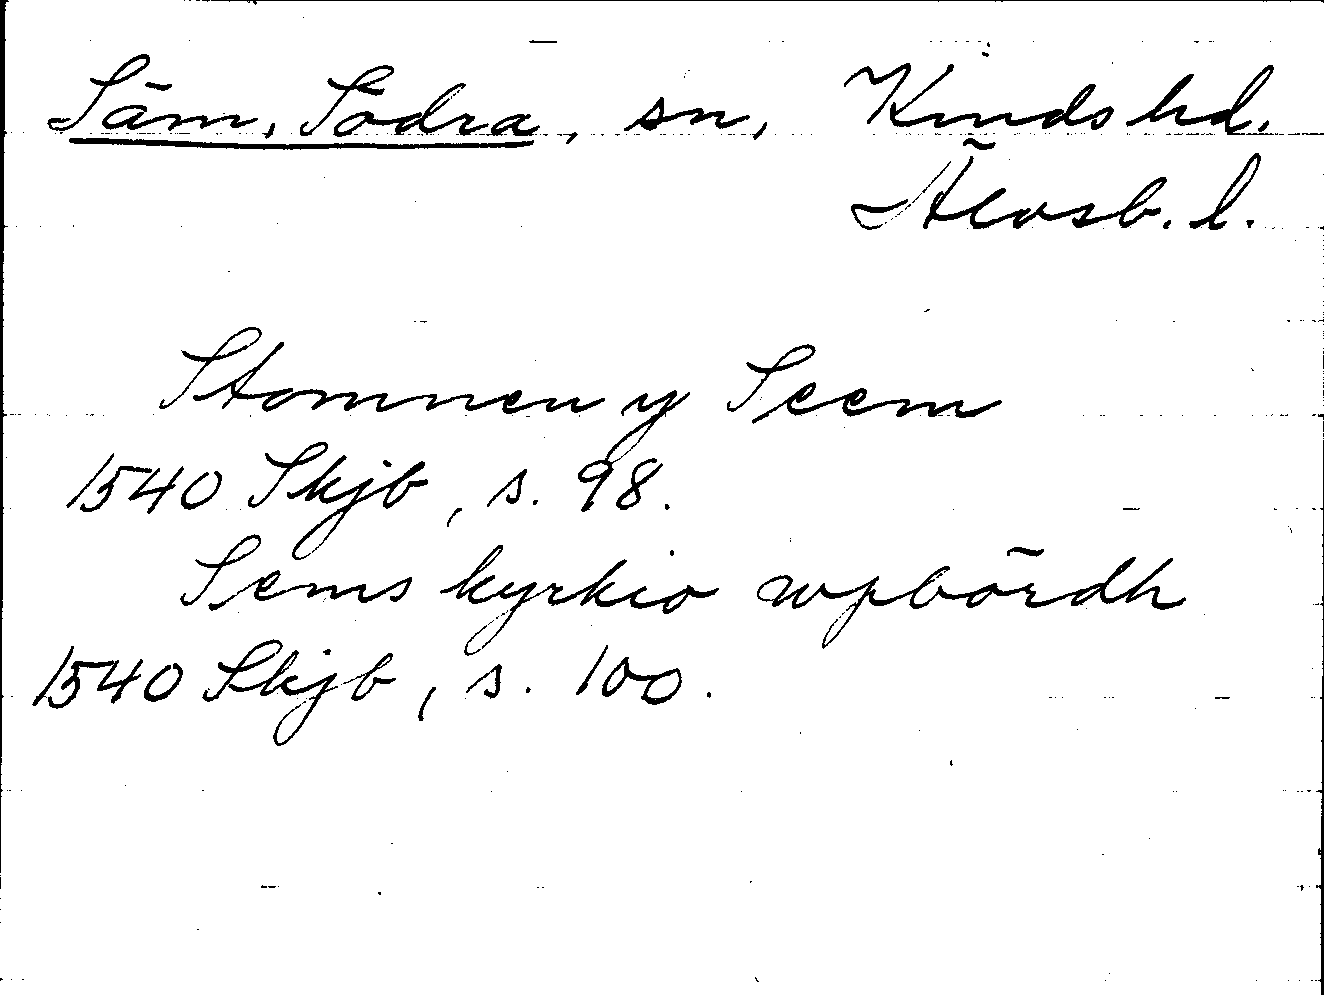 Säm, Södra, sn, Kinds hd.
Älvsb. l.
Stomnen y Seem
1540 Skjb, s. 98.
Sems kyrkio wpbördh
1540 Skjb, s. 100.